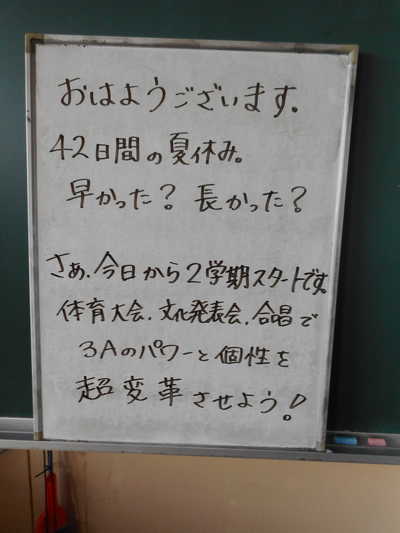 おはようございます。
42日間の夏休み。
早かった？長かった？
さぁ、今日から2学期スタートです。
体育大会、文化発表会、合唱で
3Aのパワーと個性を
超変革させよう！